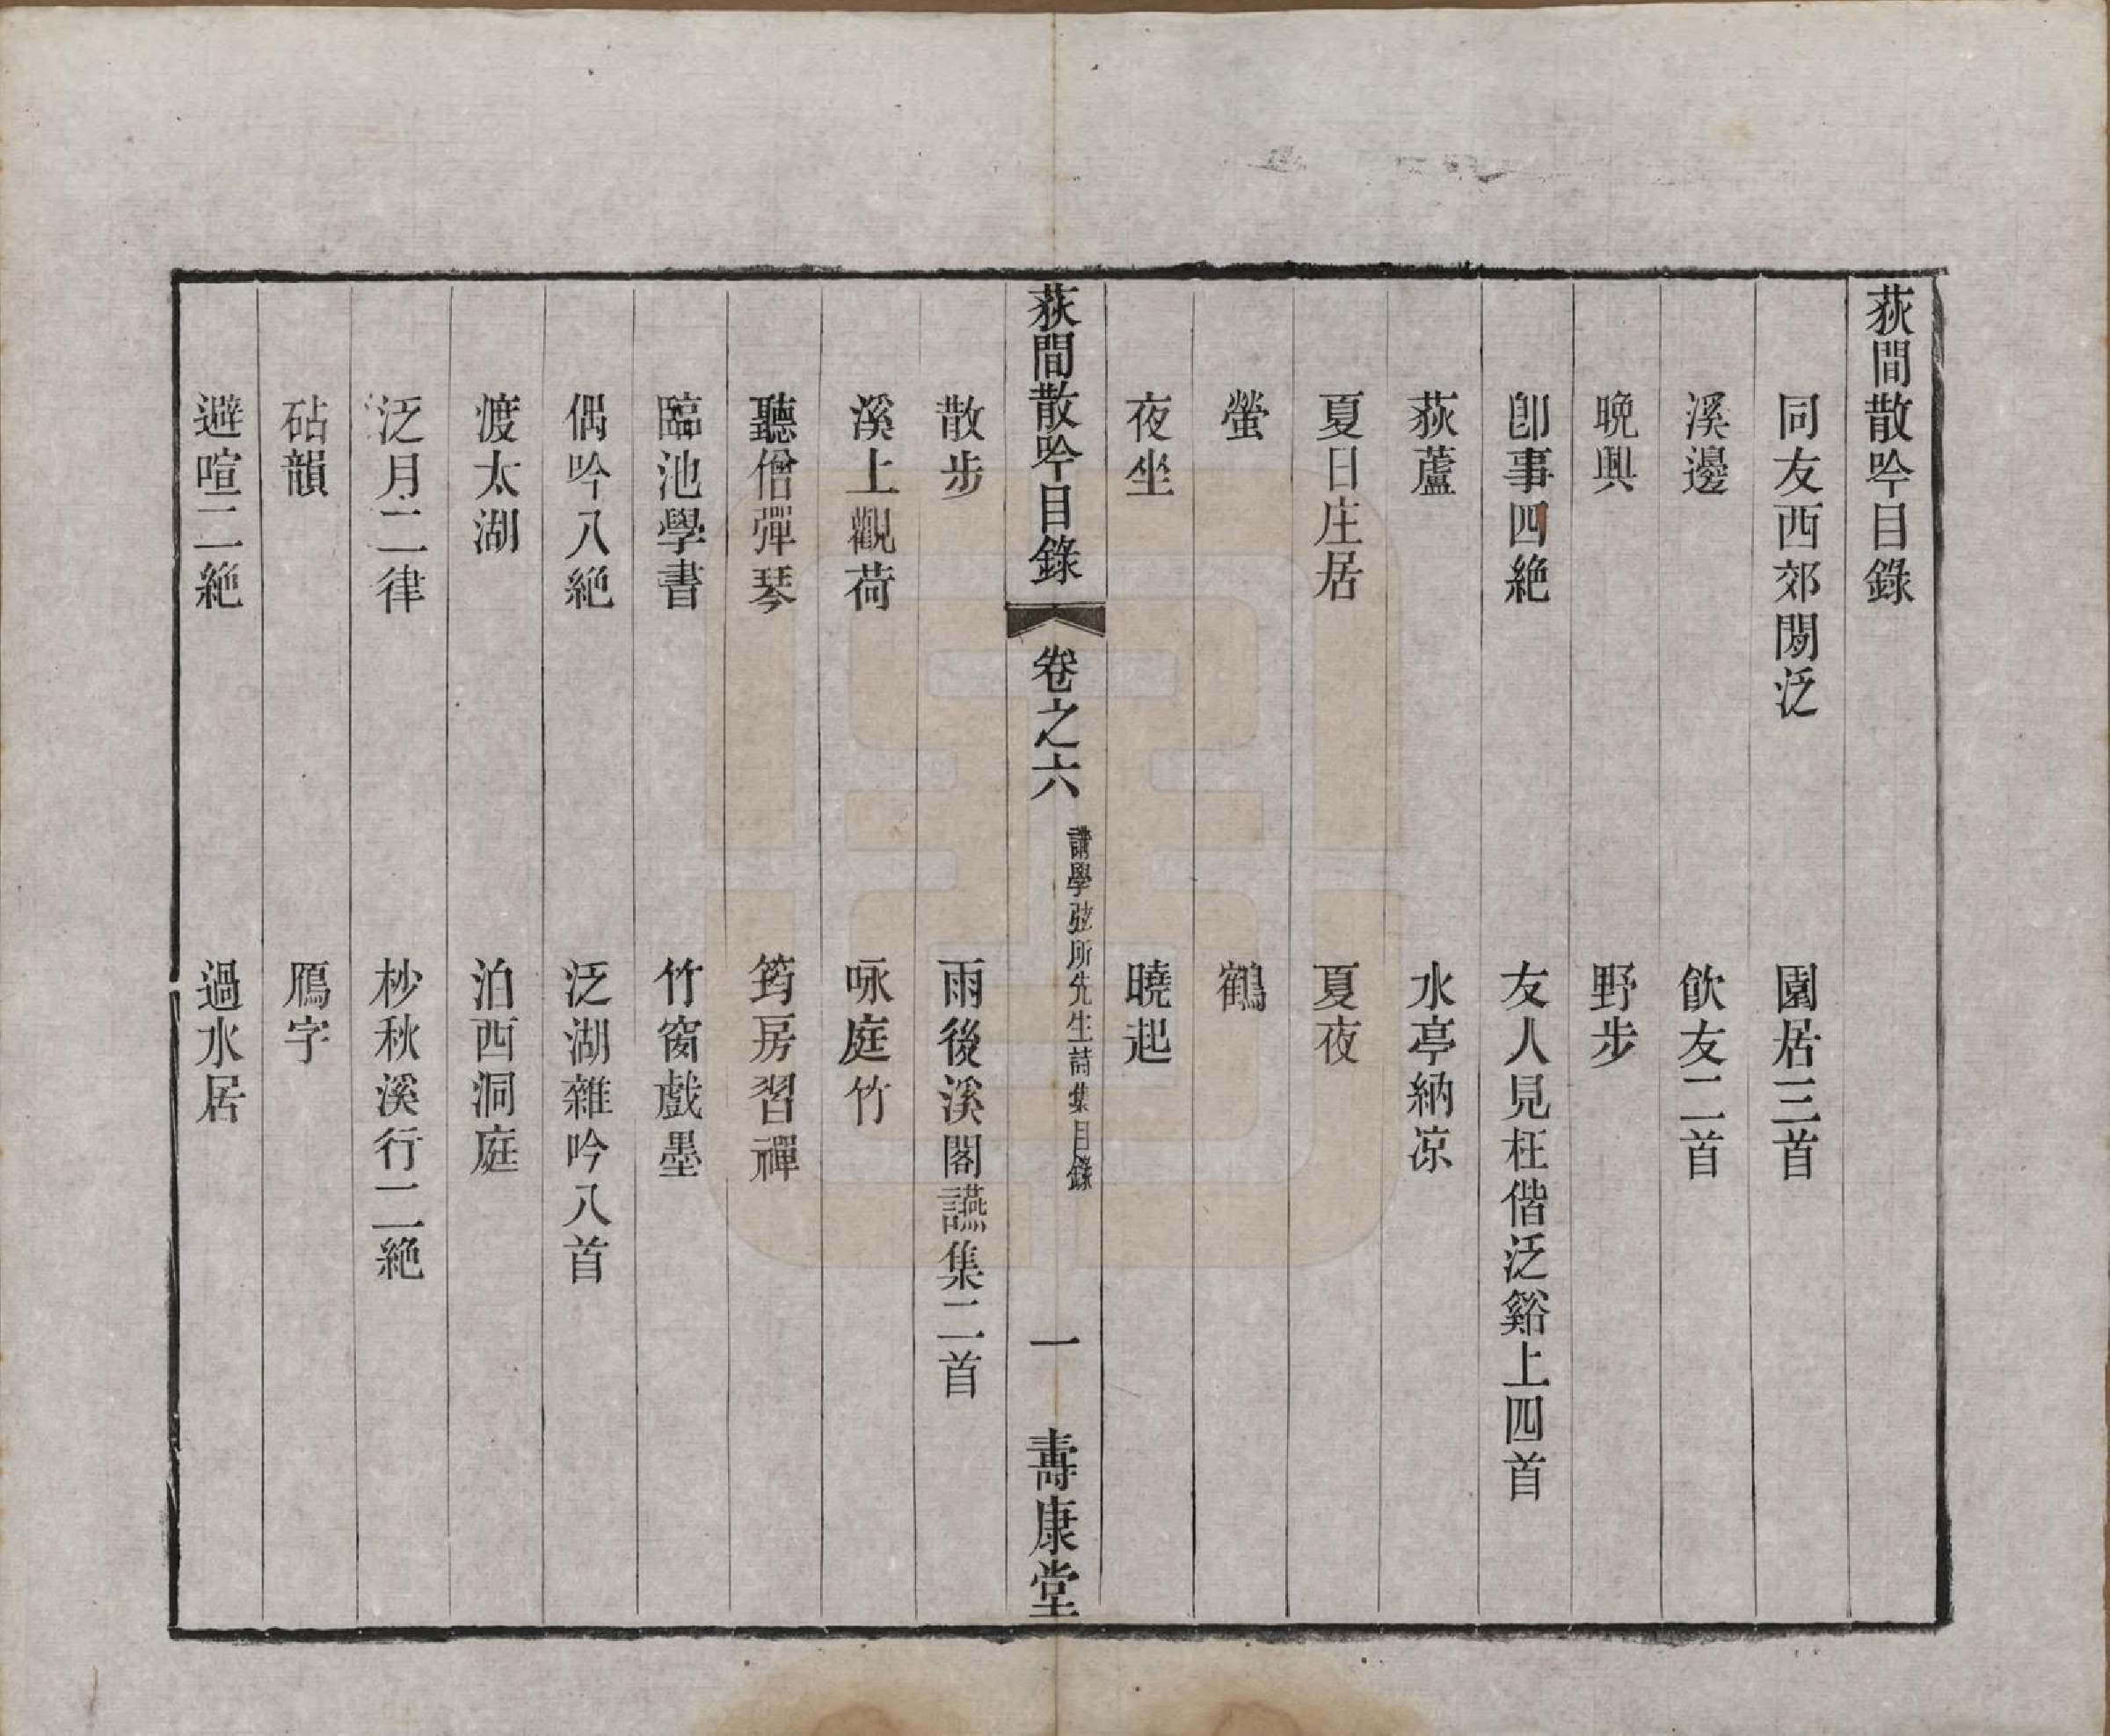 荻間散吟目錄
同友西郊閒泛　園居三首
溪邊　飲友二首
晚興　野步
卽事四絶　友人見枉偕泛谿上四首
荻蘆　水亭納凉
夏日庄居　夏夜
螢　鶴
夜坐　曉起
荻間散吟目錄　卷之六　講學弦所先生詩集目錄　一　壽康堂
散步　雨後溪閣讌集二首
溪上觀荷　咏庭竹
聽僧彈琴　筠房習禪
臨池學書　竹窗戲墨
偶吟八絶　泛湖雜吟八首
渡太湖　泊西洞庭
泛月二律　杪秋溪行二絶
砧韻　鴈字
避喧二絶　過水居